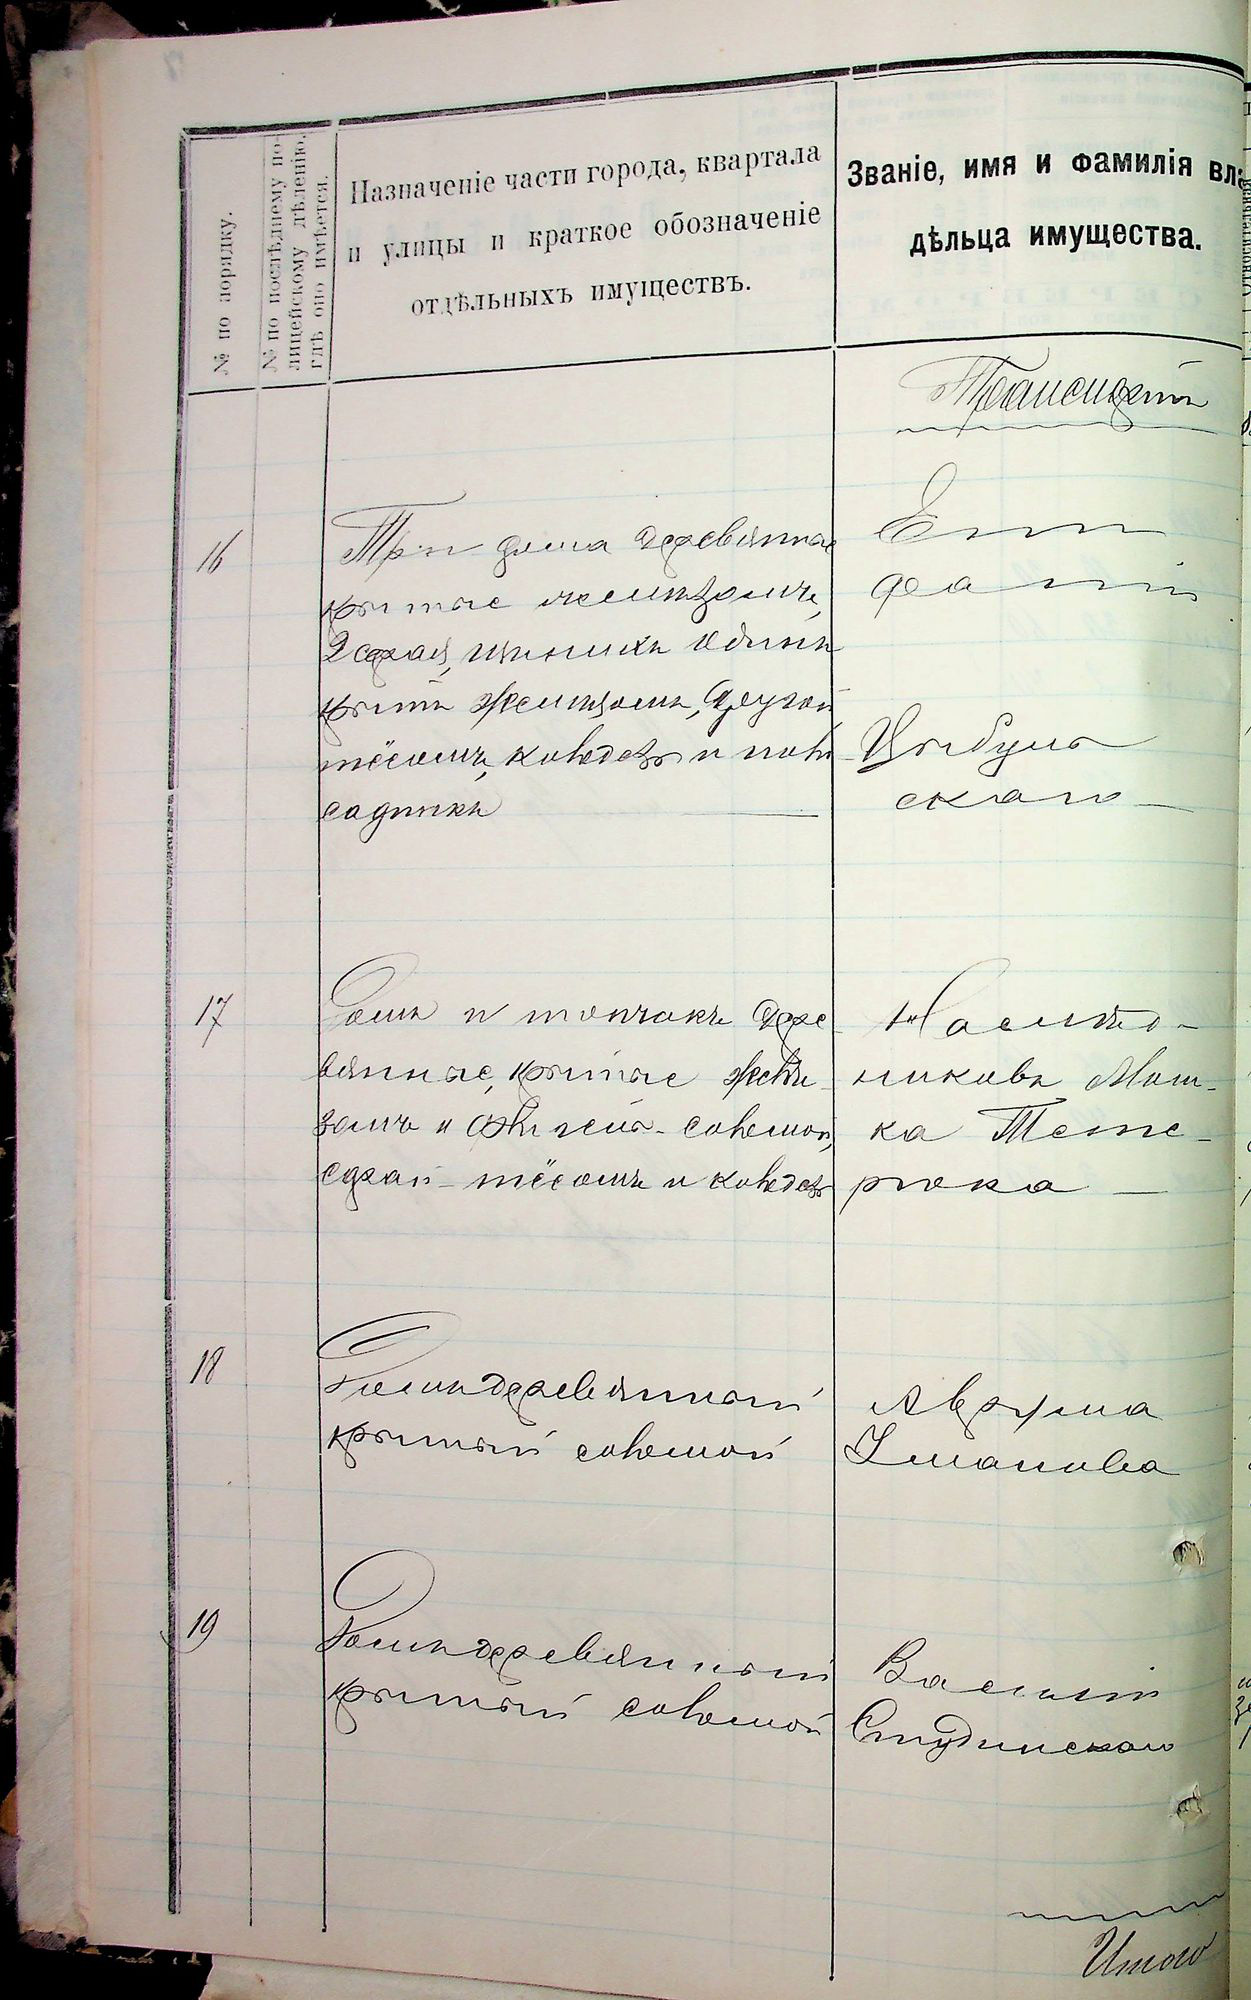 № по порядку.
№ по послѣднему по-
лицейскому дѣленію,
гдѣ оно имѣется.
Назначеніе части города, квартала
и улицы и краткое обозначеніе
отдѣльныхъ имуществъ.
Званіе, имя и фамилія вла
дѣльца имущества.
Транспортъ
16
Три дома деревянные
крытые желѣзомъ,
2 сарая, одинъ
крытъ желѣзомъ, другой
тёсомъ, колодезь и пали
садникъ
Епи
фаній
Цыбуль
скаго
17
Домъ и дере
вянные, крытые желѣ
зомъ и флигель - соломой,
сарай - тёсомъ и колодезь
Наслѣд-
никовъ Мош-
ка Тете-
рюка
18
Домъ деревянный
крытый соломой
Аврума
Уманова
19
Домъ деревянный
крытый соломой
Василій
Студинскаго
Итого